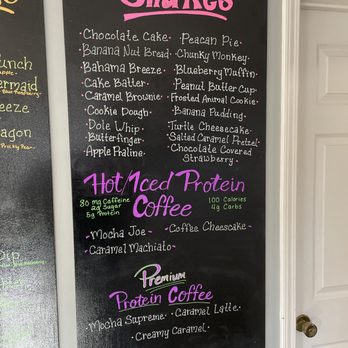 Shakes
-Chocolate Cake-
-Peacan Pie-
Banana Nut Bread-
-Chunky Monkey-
-Bahama Breeze-
-Blueberry Muffin-
-Cake Batter-
-Peanut Butter Cup-
-Caramel Brownie-
-Frosted Animal Cookie-
-Cookie Dough-
-Banana Pudding-
-Dole Whip-
-Turtle Cheesecake-
-Butterfinger-
-Salted Caramel Pretzel-
-Apple Praline-
-Chocolate Covered
Strawberry-
Hot/Iced Protein
Coffee
80 mg Caffeine
2g Sugar
5g Protein
100 Calories
4g Carbs
-Mocha Joe-
-Coffee Cheescake-
-Caramel Machiato-
Premium
Protein Coffee
-Mocha Supreme-
-Caramel Latte-
-Creamy Caramel-
unch
ermaid
eeze
agon
Prickly Pear
Dip